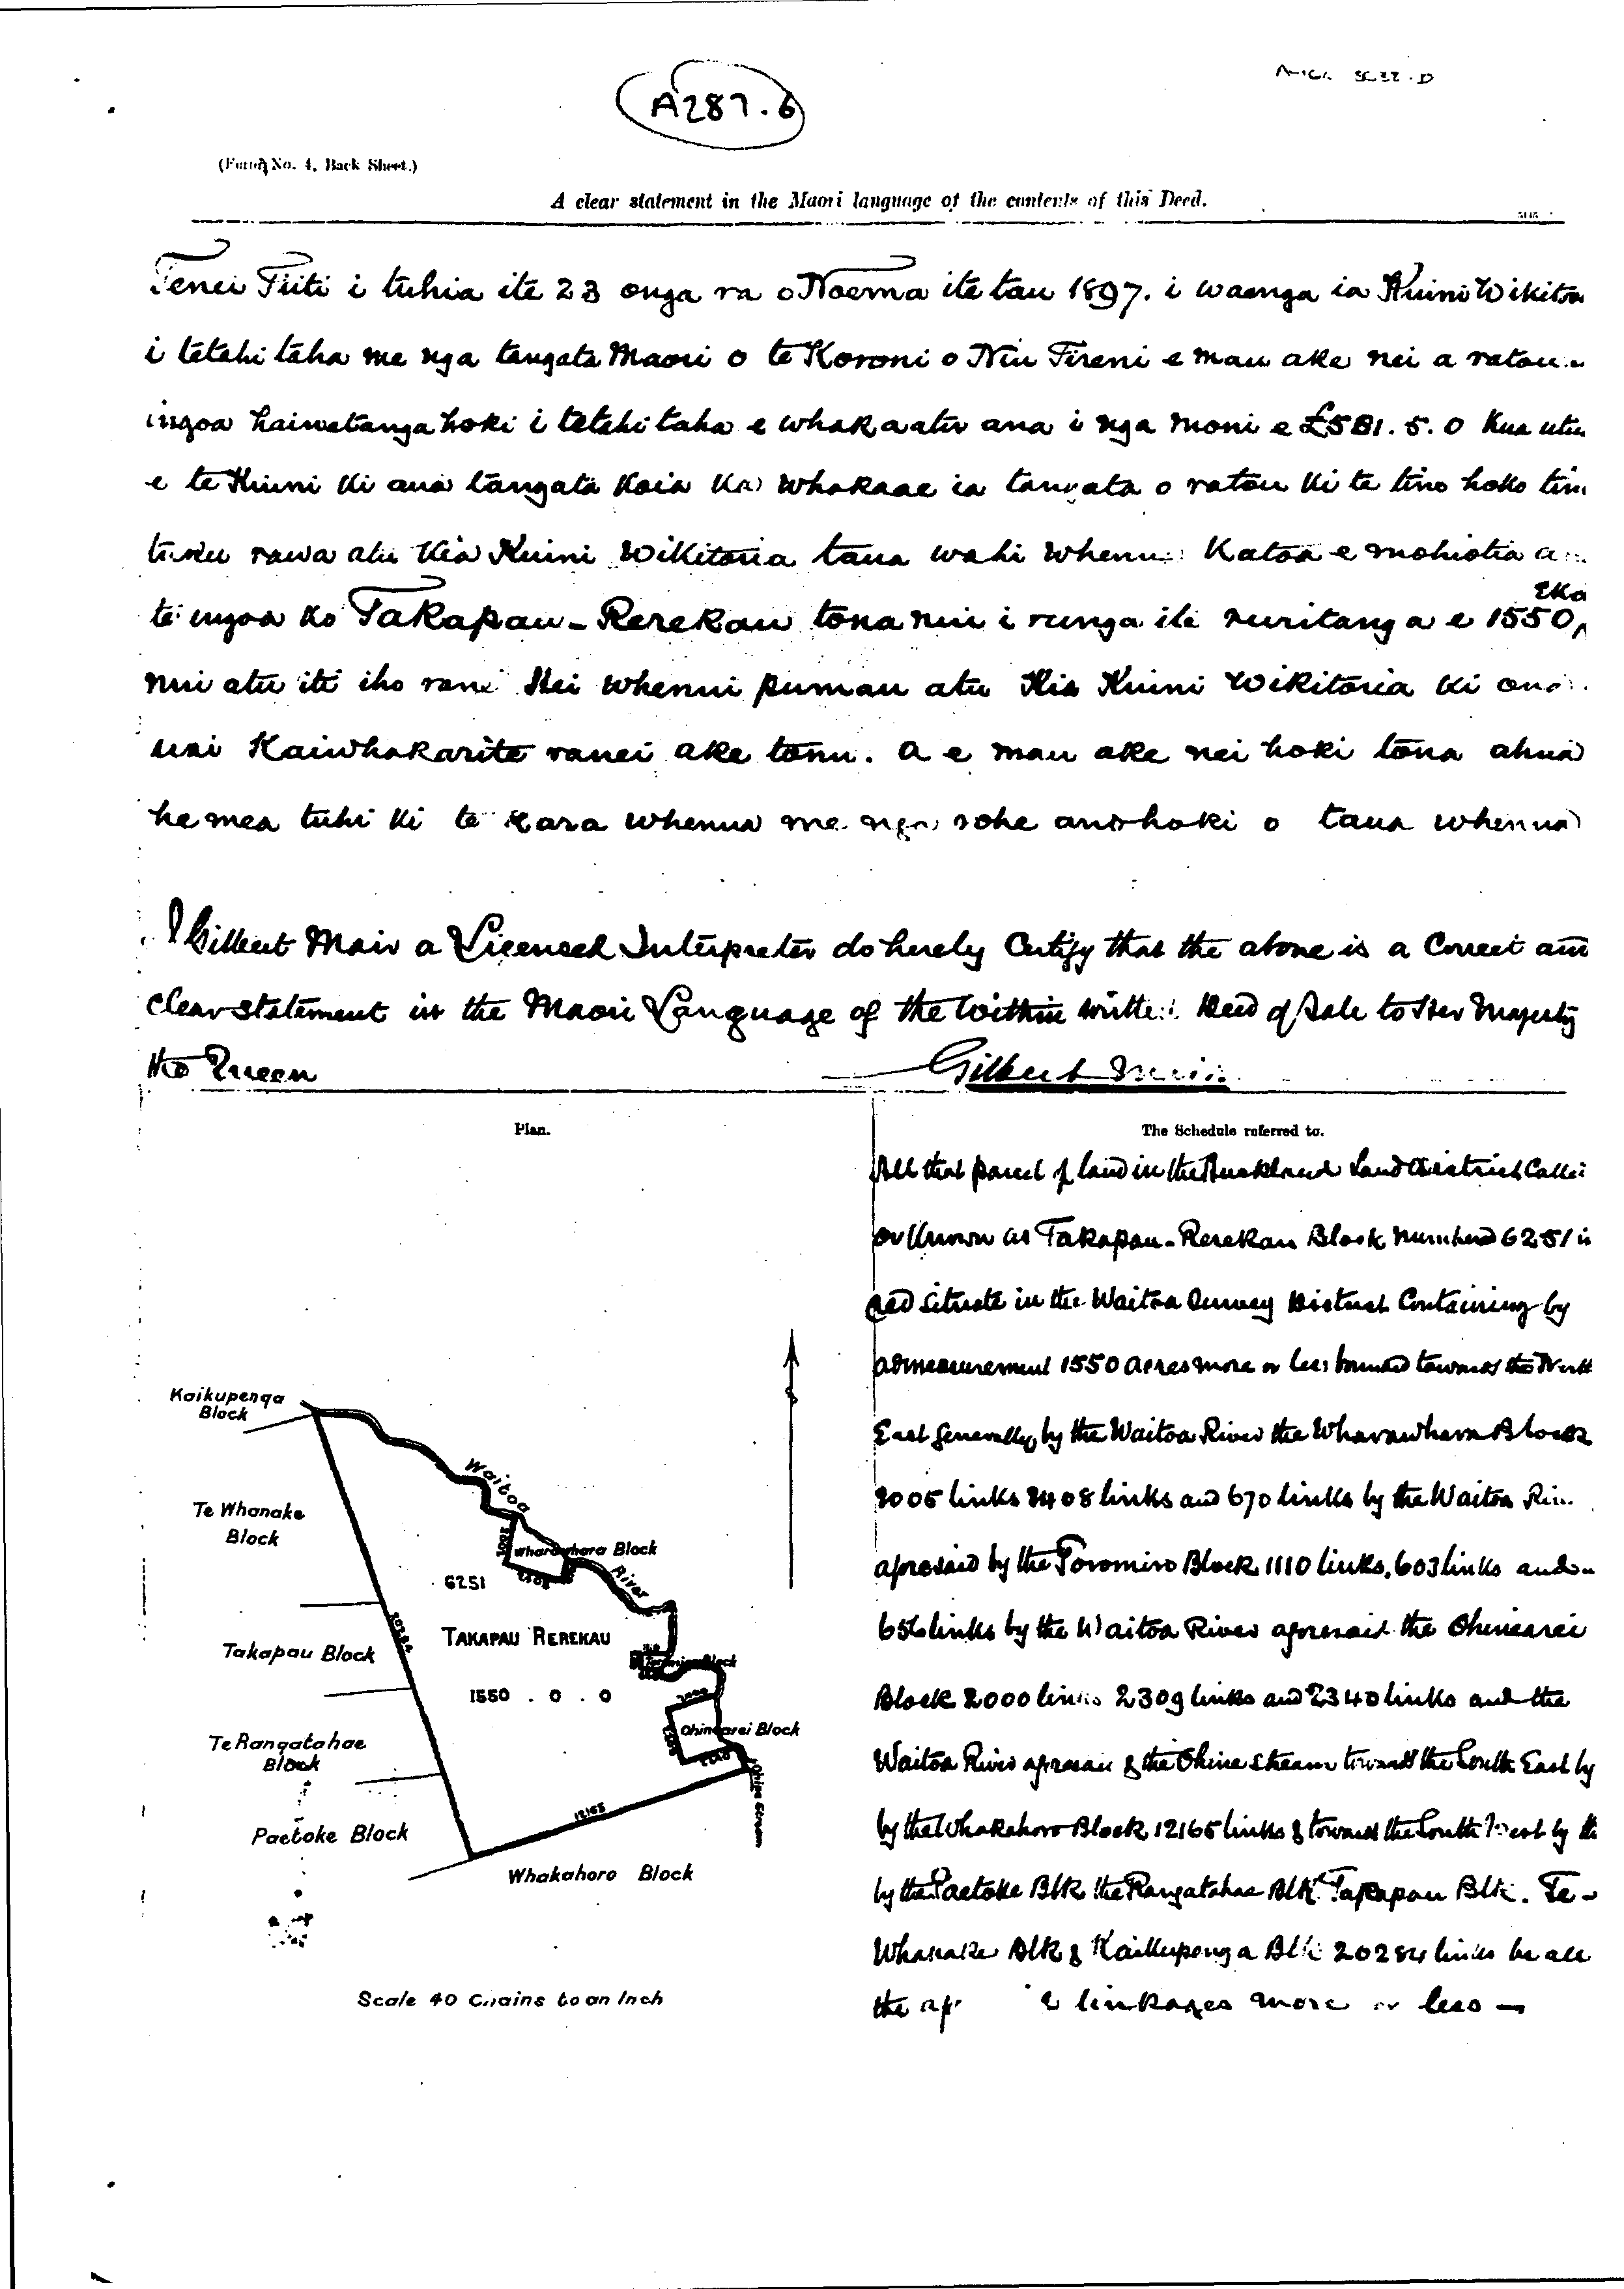 A287.6
(Form No. 4, Back Sheet.)
A clear statement in the Maori language of the contents of this Deed.
Tenei Tiiti i tuhia ite 23 onga ra o Noema ite tau 1897. i waenga ia Kuini Wikitoria
i tetahi taha me nga tangata Maori o te Koroni o Niu Tireni e mau ake nei a ratou
ingoa hainatanga hoki i tetehi taha e whakaatu ana i nga moni e £581.5.0 Kua utu
e te Kuini ki aua tangata Koia Ka whakaae ia tangata o ratou ki te tino hoko tino
tuku rawa atu Kia Kuini Wikitoria taua wahi whenua Katoa e mohiotia
te ingoa ko Takapau-Rerekau tona nui i runga ite ruritanga e 1550,
Eka
nui atu iti iho rani Hei whenui pumau atu Kia Kuini Wikitoria ki ona
uri Kaiwhakarite ranei ake tonu. a e mau ake nei hoki tona ahua
he mea tuhi ki te whenua me nga rohe anohoki o taua whenua
I Gilbert Mair a Licensed Interpreter do hereby Certify that the above is a Correct and
clear statement in the Maori Language of the Within written Deed of Sale to Her Majesty
the Queen
Gilbert Mair
Plan.
Kaikupenga
Block
Te Whanake
Block
Waitoa
Wharawhara Block
River
6251
TAKAPAU REREKAU
1550 . 0 . 0
Takapau Block
Toromiro Block
Te Rangatahae
Block
Ohinearei Block
Ohine Stream
Paetoke Block
12165
Whakahoro Block
Scale 40 Chains to an Inch
The Schedule referred to.
All that parcel of land in the Auckland Land District Called
or Known as Takapau-Rerekau Block Numbered 6251 in
red situate in the Waitoa Survey District Containing by
admeasurement 1550 acres more or less bounded towards the North
East generally by the Waitoa River the Wharawhara Block
1005 links 2408 links and 670 links by the Waitoa River
aforesaid by the Toromiro Block 1110 links, 603 links and
656 links by the Waitoa River aforesaid the Ohinearei
Block 2000 links 2309 links and 2340 links and the
Waitoa River aforesaid & the Ohine stream towards the South East by
by the Whakahoro Block 12165 links & towards the South West by the
by the Paetoke Blk the Rangatahae Blk Takapau Blk. Te-
Whanake Blk & Kaikupenga Blk 20284 links be all
the linkages more or less